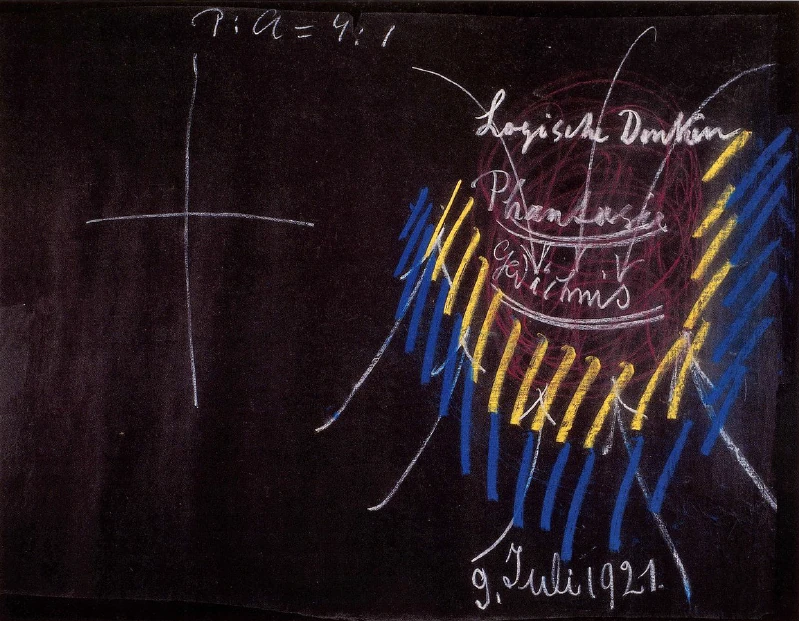 P : A = 4 : 1
Logische Denken
Phantasie
Gedächtnis
9. Juli 1921.